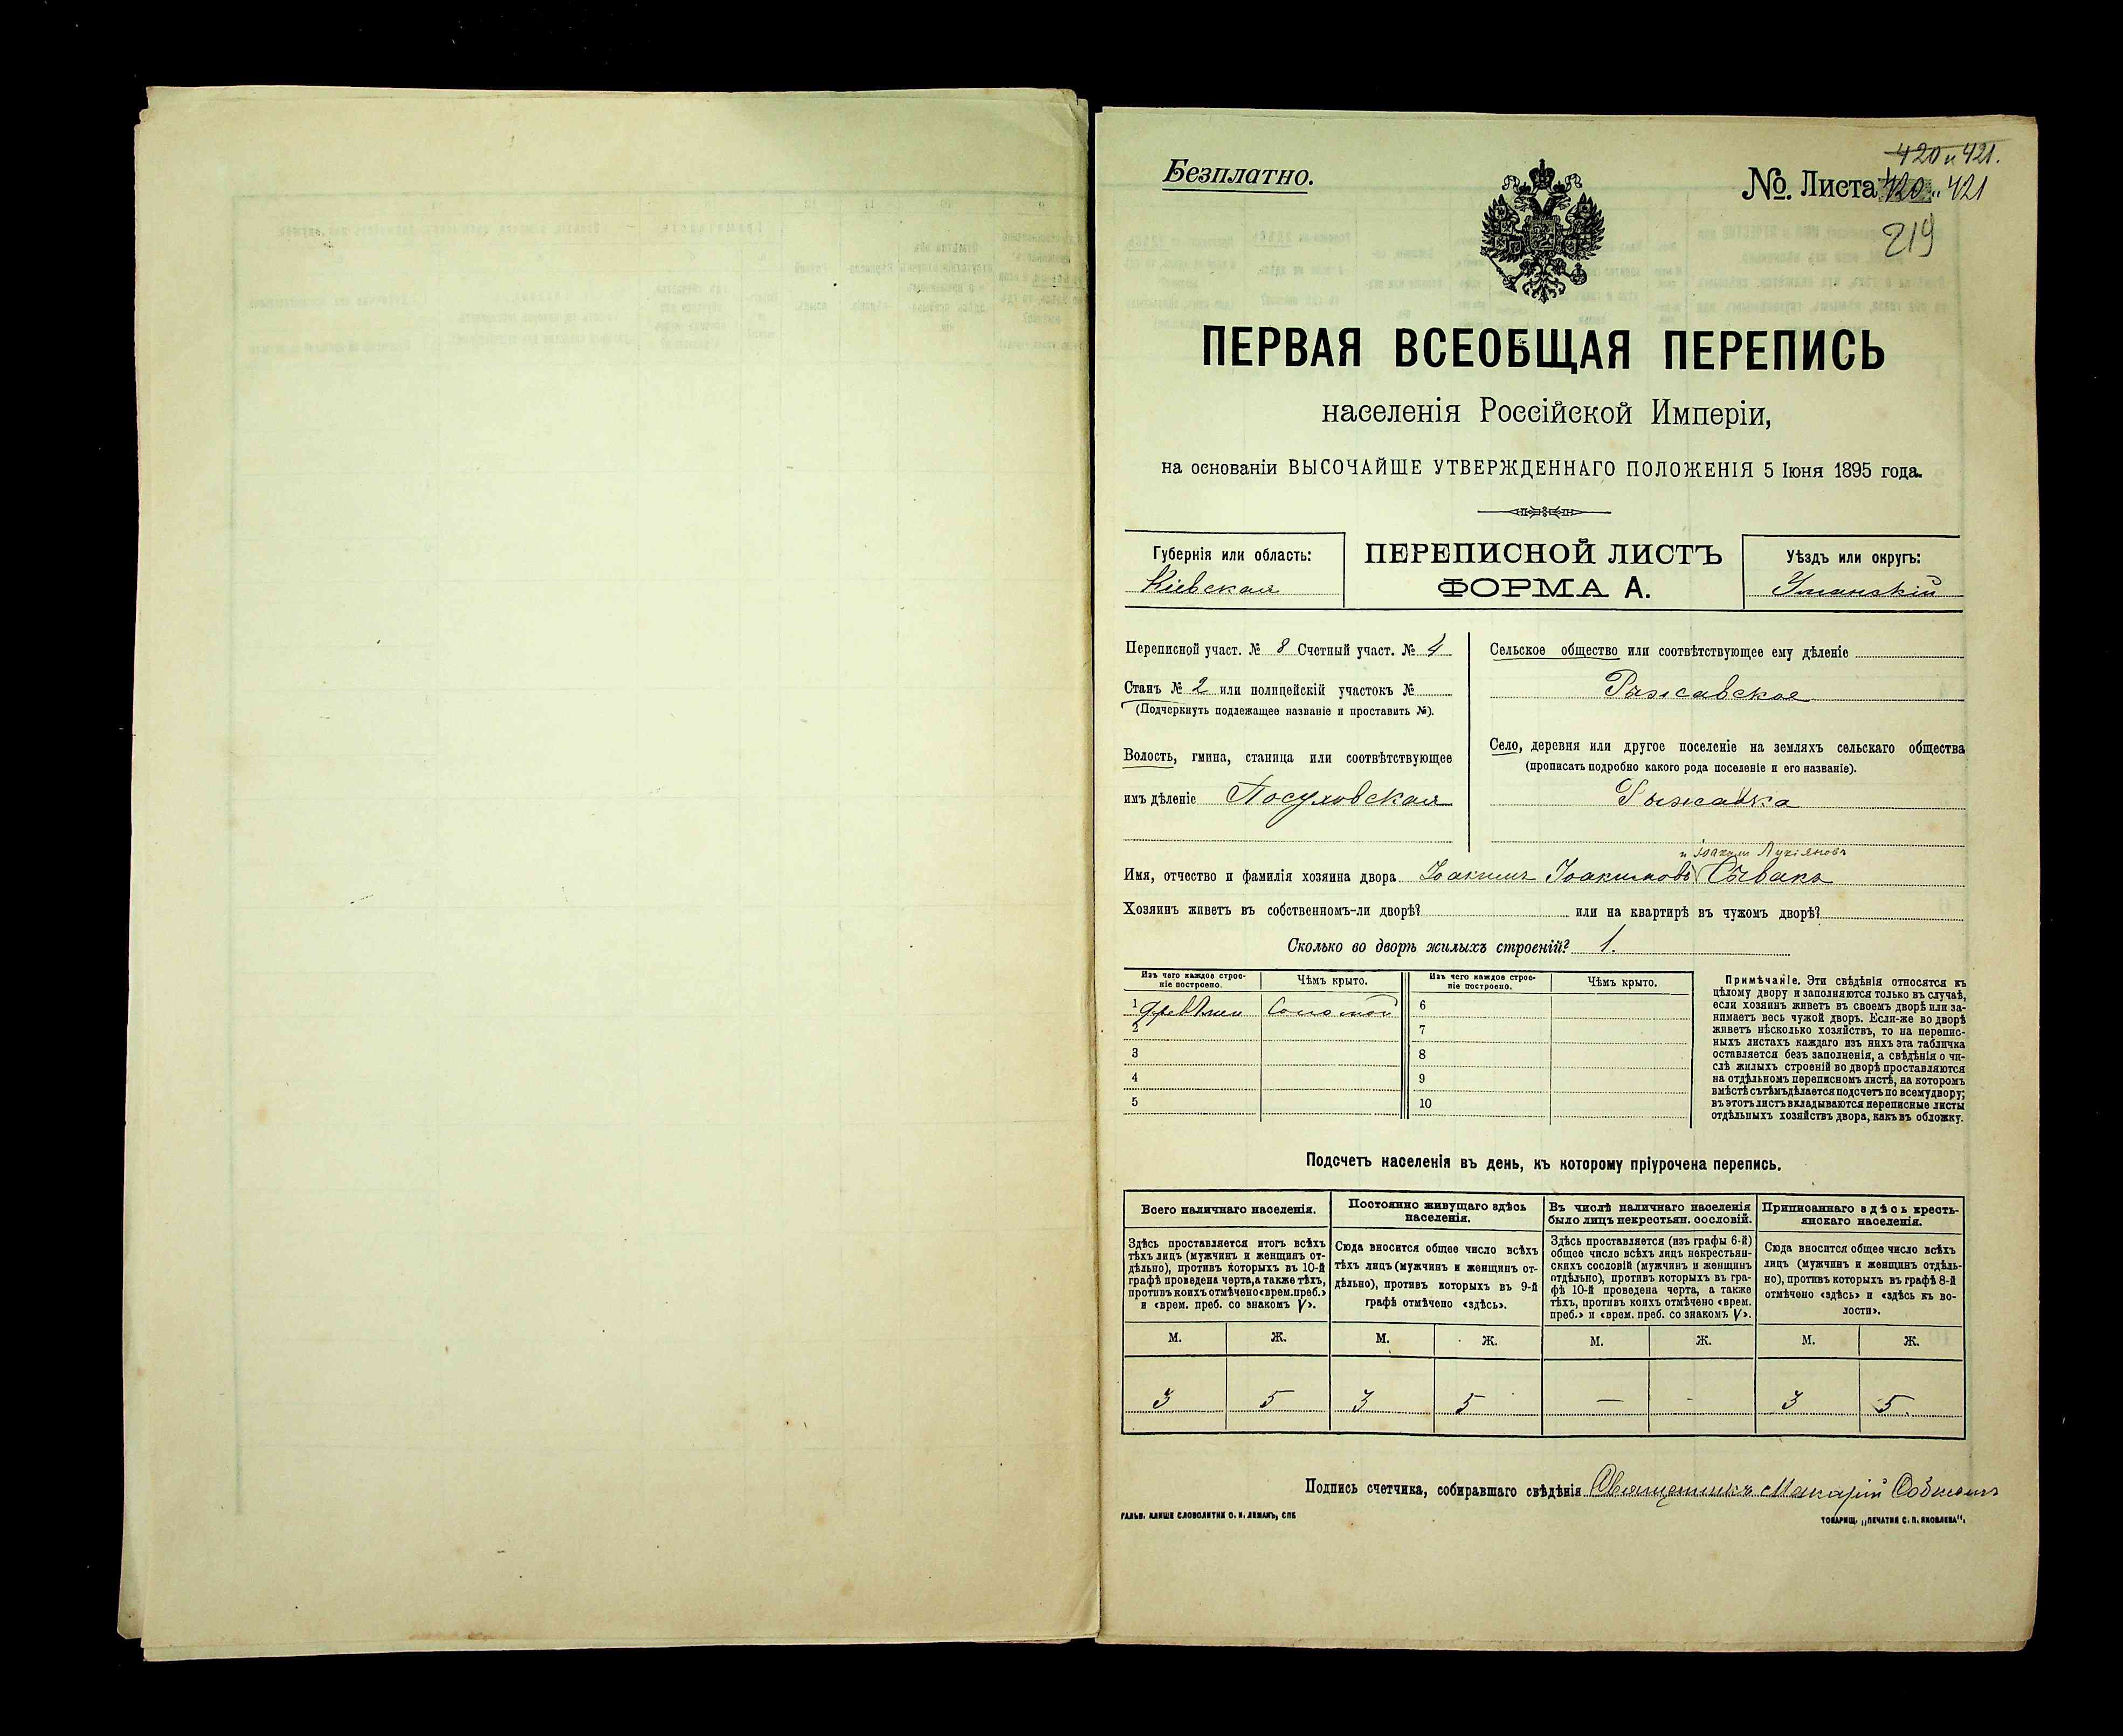 420 и 421.
Безплатно.
№. Листа 420 и 421
219
ПЕРВАЯ ВСЕОБЩАЯ ПЕРЕПИСЬ
населенія Россійской Имперіи,
на основаніи ВЫСОЧАЙШЕ УТВЕРЖДЕННАГО ПОЛОЖЕНІЯ 5 Іюня 1895 года.
Губернія или область:
Кіевская
ПЕРЕПИСНОЙ ЛИСТЪ
ФОРМА А.
Уѣздъ или округъ:
Уманскій
Переписной участ. № 8 Счетный участ. № 4
Станъ № 2 или полицейскій участокъ №
(Подчеркнуть подлежащее названіе и проставить №).
Волость, гмина, станица или соотвѣтствующее
имъ дѣленіе Посуховская
Сельское общество или соотвѣтствующее ему дѣленіе
Рыжавское
Село, деревня или другое поселеніе на земляхъ сельскаго общества
(прописать подробно какого рода поселеніе и его названіе).
Рыжавка
и Іоаким Лукіяновъ
Имя, отчество и фамилія хозяина двора Іоакимъ Іоакимовъ Сывакъ
Хозяинъ живетъ въ собственномъ-ли дворѣ? или на квартирѣ въ чужомъ дворѣ?
Сколько во дворѣ жилыхъ строеній? 1.
Изъ чего каждое строе-
ніе построено.
Чѣмъ крыто.
Изъ чего каждое строе-
ніе построено.
Чѣмъ крыто.
1 Соломой 6
2 7
3 8
4 9
5 10
Примѣчаніе. Эти свѣдѣнія относятся къ
цѣлому двору и заполняются только въ случаѣ,
если хозяинъ живетъ въ своемъ дворѣ или за-
нимаетъ весь чужой дворъ. Если-же во дворѣ
живетъ нѣсколько хозяйствъ, то на перепис-
ныхъ листахъ каждаго изъ нихъ эта табличка
оставляется безъ заполненія, а свѣдѣнія о чи-
слѣ жилыхъ строеній во дворѣ проставляются
на отдѣльномъ переписномъ листѣ, на которомъ
вмѣстѣ съ тѣмъ дѣлается подсчетъ по всему двору;
въ этотъ листъ вкладываются переписные листы
отдѣльныхъ хозяйствъ двора, какъ въ обложку.
Подсчетъ населенія въ день, къ которому пріурочена перепись.
Всего наличнаго населенія.
Здѣсь проставляется итогъ всѣхъ
тѣхъ лицъ (мужчинъ и женщинъ от-
дѣльно), противъ которыхъ въ 10-й
графѣ проведена черта, а также тѣхъ,
противъ коихъ отмѣчено «врем. преб.»
и «врем. преб. со знакомъ V».
М. Ж.
3 5
Постоянно живущаго здѣсь
населенія.
Сюда вносится общее число всѣхъ
тѣхъ лицъ (мужчинъ и женщинъ от-
дѣльно), противъ которыхъ въ 9-й
графѣ отмѣчено «здѣсь».
М. Ж.
3 5
Въ числѣ наличнаго населенія
было лицъ некрестьян. сословій.
Здѣсь проставляется (изъ графы 6-й)
общее число всѣхъ лицъ некрестьян-
скихъ сословій (мужчинъ и женщинъ
отдѣльно), противъ которыхъ въ гра-
фѣ 10-й проведена черта, а также
тѣхъ, противъ коихъ отмѣчено «врем.
преб.» и «врем. преб. со знакомъ V».
М. Ж.
— -
Приписаннаго здѣсь кресть-
янскаго населенія.
Сюда вносится общее число всѣхъ
лицъ (мужчинъ и женщинъ отдѣль-
но), противъ которыхъ въ графѣ 8-й
отмѣчено «здѣсь» и «здѣсь къ во-
лости».
М. Ж.
3 5
Подпись счетчика, собиравшаго свѣдѣнія Священникъ Макарій
ГАЛЬВ. КЛИШЕ СЛОВОЛИТНИ О. И. ЛЕМАНЪ, СПБ
ТОВАРИЩ. „ПЕЧАТНЯ С. П. ЯКОВЛЕВА".